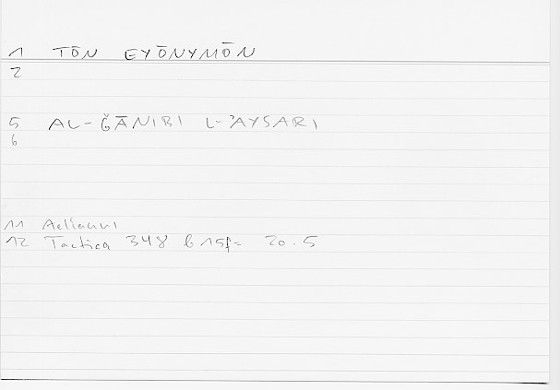 1 TŌN EYŌNYMŌN
2
5 AL-ǦĀNIBI L-ʾAYSARI
6
11 Aelianus
12 Tactica 348 b 15f = 20.5